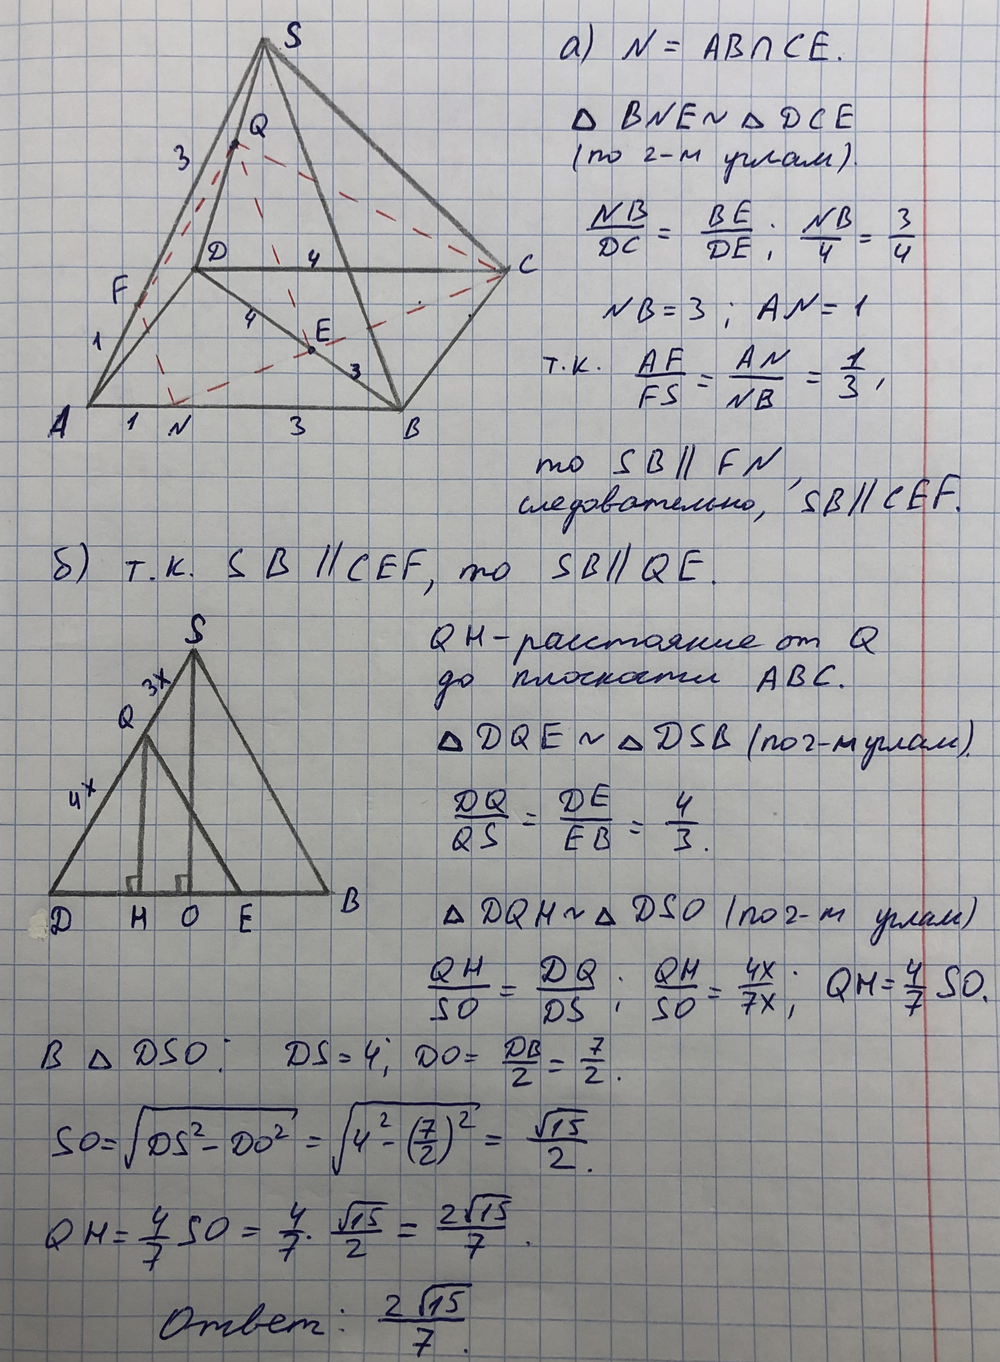 S
Q
3
D
4
C
F
4
E
1
3
A
1
N
3
B
а) N = AB∩CE.
△ BNE ~ △ DCE
(по 2-м углам).
NB/DC = BE/DE; NB/4 = 3/4
NB = 3; AN = 1
т.к. AF/FS = AN/NB = 1/3,
то SB || FN,
следовательно, SB || CEF.
б) т.к. SB || CEF, то SB || QE.
S
3x
Q
4x
D
H
O
E
B
QH – расстояние от Q
до плоскости ABC.
△ DQE ~ △ DSB (по 2-м углам).
DQ/QS = DE/EB = 4/3.
△ DQH ~ △ DSO (по 2-м углам)
QH/SO = DQ/DS; QH/SO = 4x/7x; QH = 4/7 SO.
В △ DSO: DS = 4; DO = DB/2 = 7/2.
SO = √(DS² – DO²) = √(4² – (7/2)²) = √15/2.
QH = 4/7 SO = 4/7 · √15/2 = 2√15/7.
Ответ: 2√15/7.